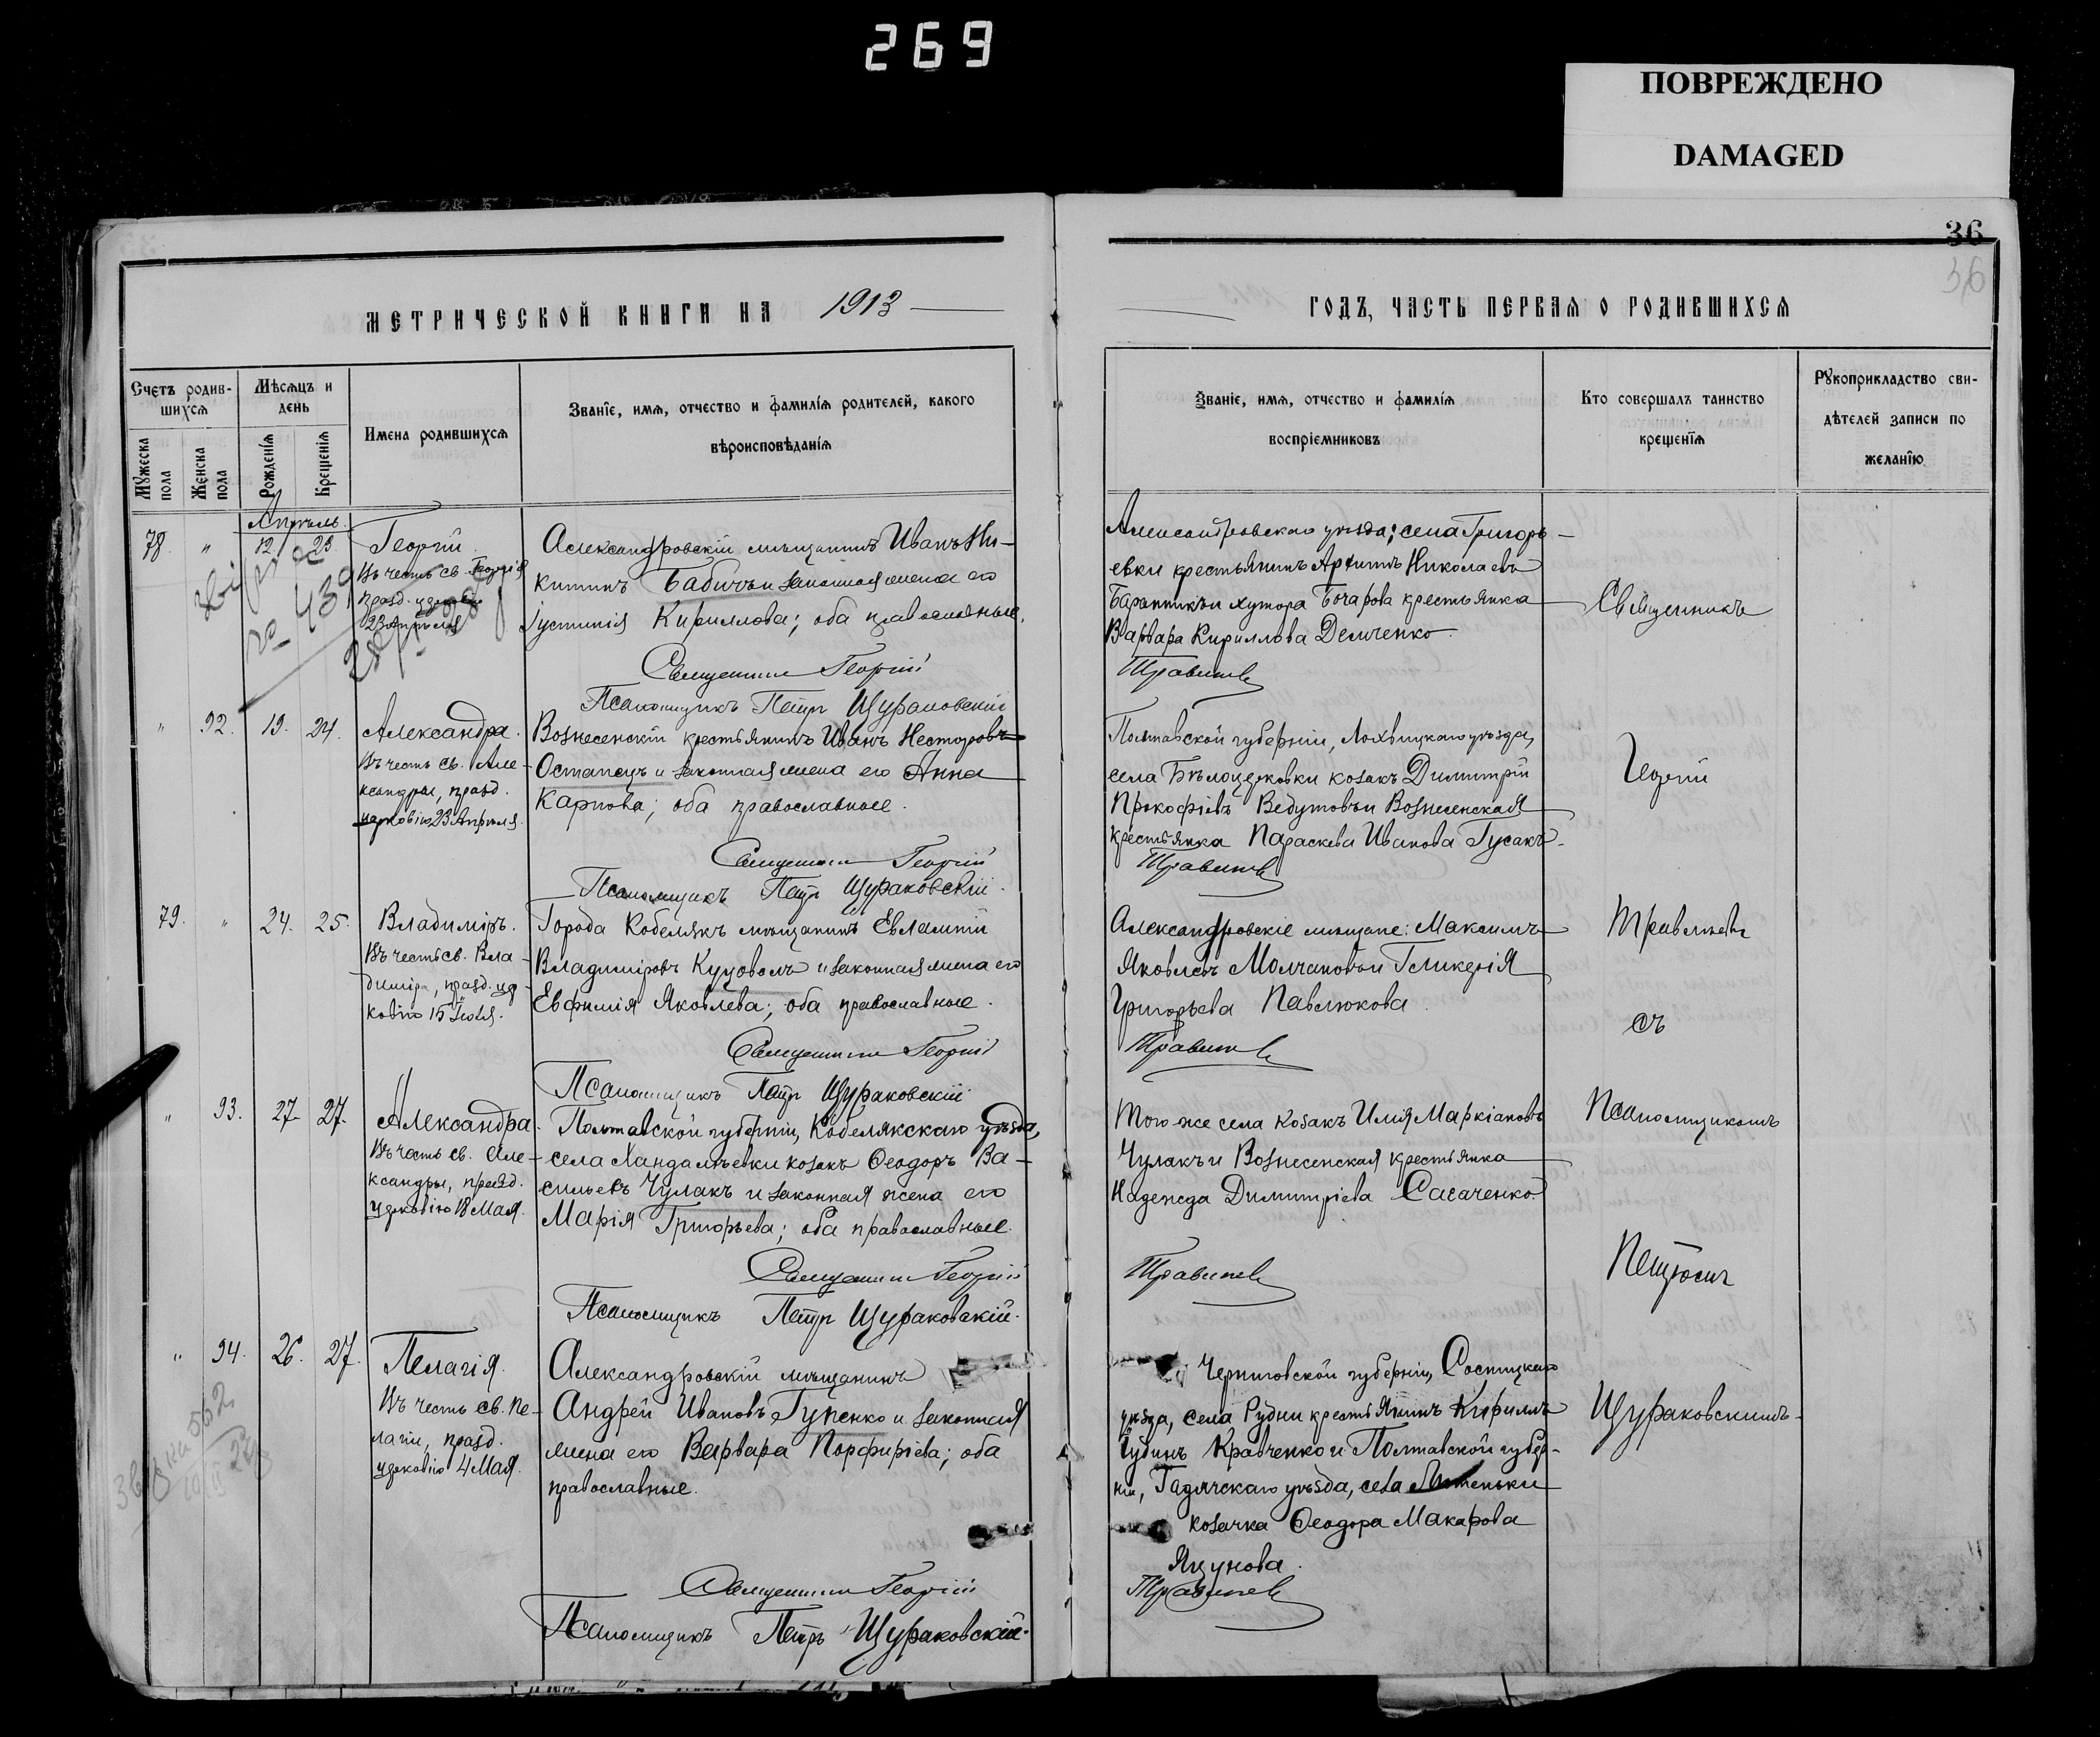 269
ПОВРЕЖДЕНО
DAMAGED
36
36
МЕТРИЧЕСКОЙ КНИГИ НА 1913
ГОДЪ, ЧАСТЬ ПЕРВАЯ О РОДИВШИХСЯ
Счетъ родив-
шихся
Мѣсяцъ и
день
Имена родившихся
Званіе, имя, отчество и фамилія родителей, какого
вѣроисповѣданія
Мужеска
пола
Женска
пола
Рожденія
Крещенія
Званіе, имя, отчество и фамилія
воспріемниковъ
Кто совершалъ таинство
крещенія
Рукоприкладство сви-
дѣтелей записи по
желанію
Апрѣль
78. " 12. 23. Георгій
Въ честь св. Георгія
празд. церковію
23 Апрѣля
Александровскій мѣщанинъ Иванъ Ни-
китинъ Бабичъ и законная жена его
Іустинія Кириллова; оба православные.
Священникъ Георгій
Псаломщикъ Петръ Щураковскій
Александровскаго уѣзда, села Григорь-
евки крестьянинъ Николаевъ
и хутора Бочарова крестьянка
Варвара Кириллова Демченко.
Травинѣвъ
Священникъ
" 92. 19. 24. Александра.
Въ честь св. Але-
ксандры, празд.
церковію 23 Апрѣля.
Вознесенскій крестьянинъ Иванъ Несторовъ
Остапецъ и законная жена его Анна
Карпова; оба православные.
Священникъ Георгій
Псаломщикъ Петръ Щураковскій.
Полтавской губерніи, Лохвицкаго уѣзда,
села Бѣлоцерковки козакъ Димитрій
Прокофіевъ и Вознесенская
крестьянка Параскева Иванова Гусакъ.
Травинѣвъ
Георгій
79. " 24. 25. Владиміръ.
Въ честь св. Вла-
диміра, празд. цер-
ковію 15 Іюля.
Города Кобелякъ мѣщанинъ Евлампій
Владиміровъ Куцоволъ и законная жена его
Евфимія Яковлева; оба православные.
Священникъ Георгій
Псаломщикъ Петръ Щураковскій
Александровскіе мѣщане: Максимъ
Яковлевъ Молчановъ и Гликерія
Григорьева Павлюкова.
Травинѣвъ
Травинѣвъ
съ
" 93. 27. 27. Александра.
Въ честь св. Але-
ксандры, празд.
церковію 18 Мая.
Полтавской губерніи, Кобелякскаго уѣзда,
села козакъ Ѳеодоръ Ва-
сильевъ Чулакъ и законная жена его
Марія Григорьева; оба православные.
Священникъ Георгій
Псаломщикъ Петръ Щураковскій.
Того-же села козакъ Илія Маркіановъ
Чулакъ и Вознесенская крестьянка
Надежда Димитріева Сасаченко
Травинѣвъ
Псаломщикомъ
Петромъ
" 94. 26. 27. Пелагія.
Въ честь св. Пе-
лагіи, празд.
церковію 4 Мая.
Александровскій мѣщанинъ
Андрей Ивановъ Гупенко и законная
жена его Варвара Порфиріева; оба
православные.
Священникъ Георгій
Псаломщикъ Петръ Щураковскій.
Черниговской губерніи, Сосницкаго
уѣзда, села Рудни крестьянинъ Кириллъ
Кравченко и Полтавской губер-
ніи, Гадячскаго уѣзда, села Лютеньки
козачка Ѳеодора Макарова
Яцунова.
Травинѣвъ
Щураковскимъ.